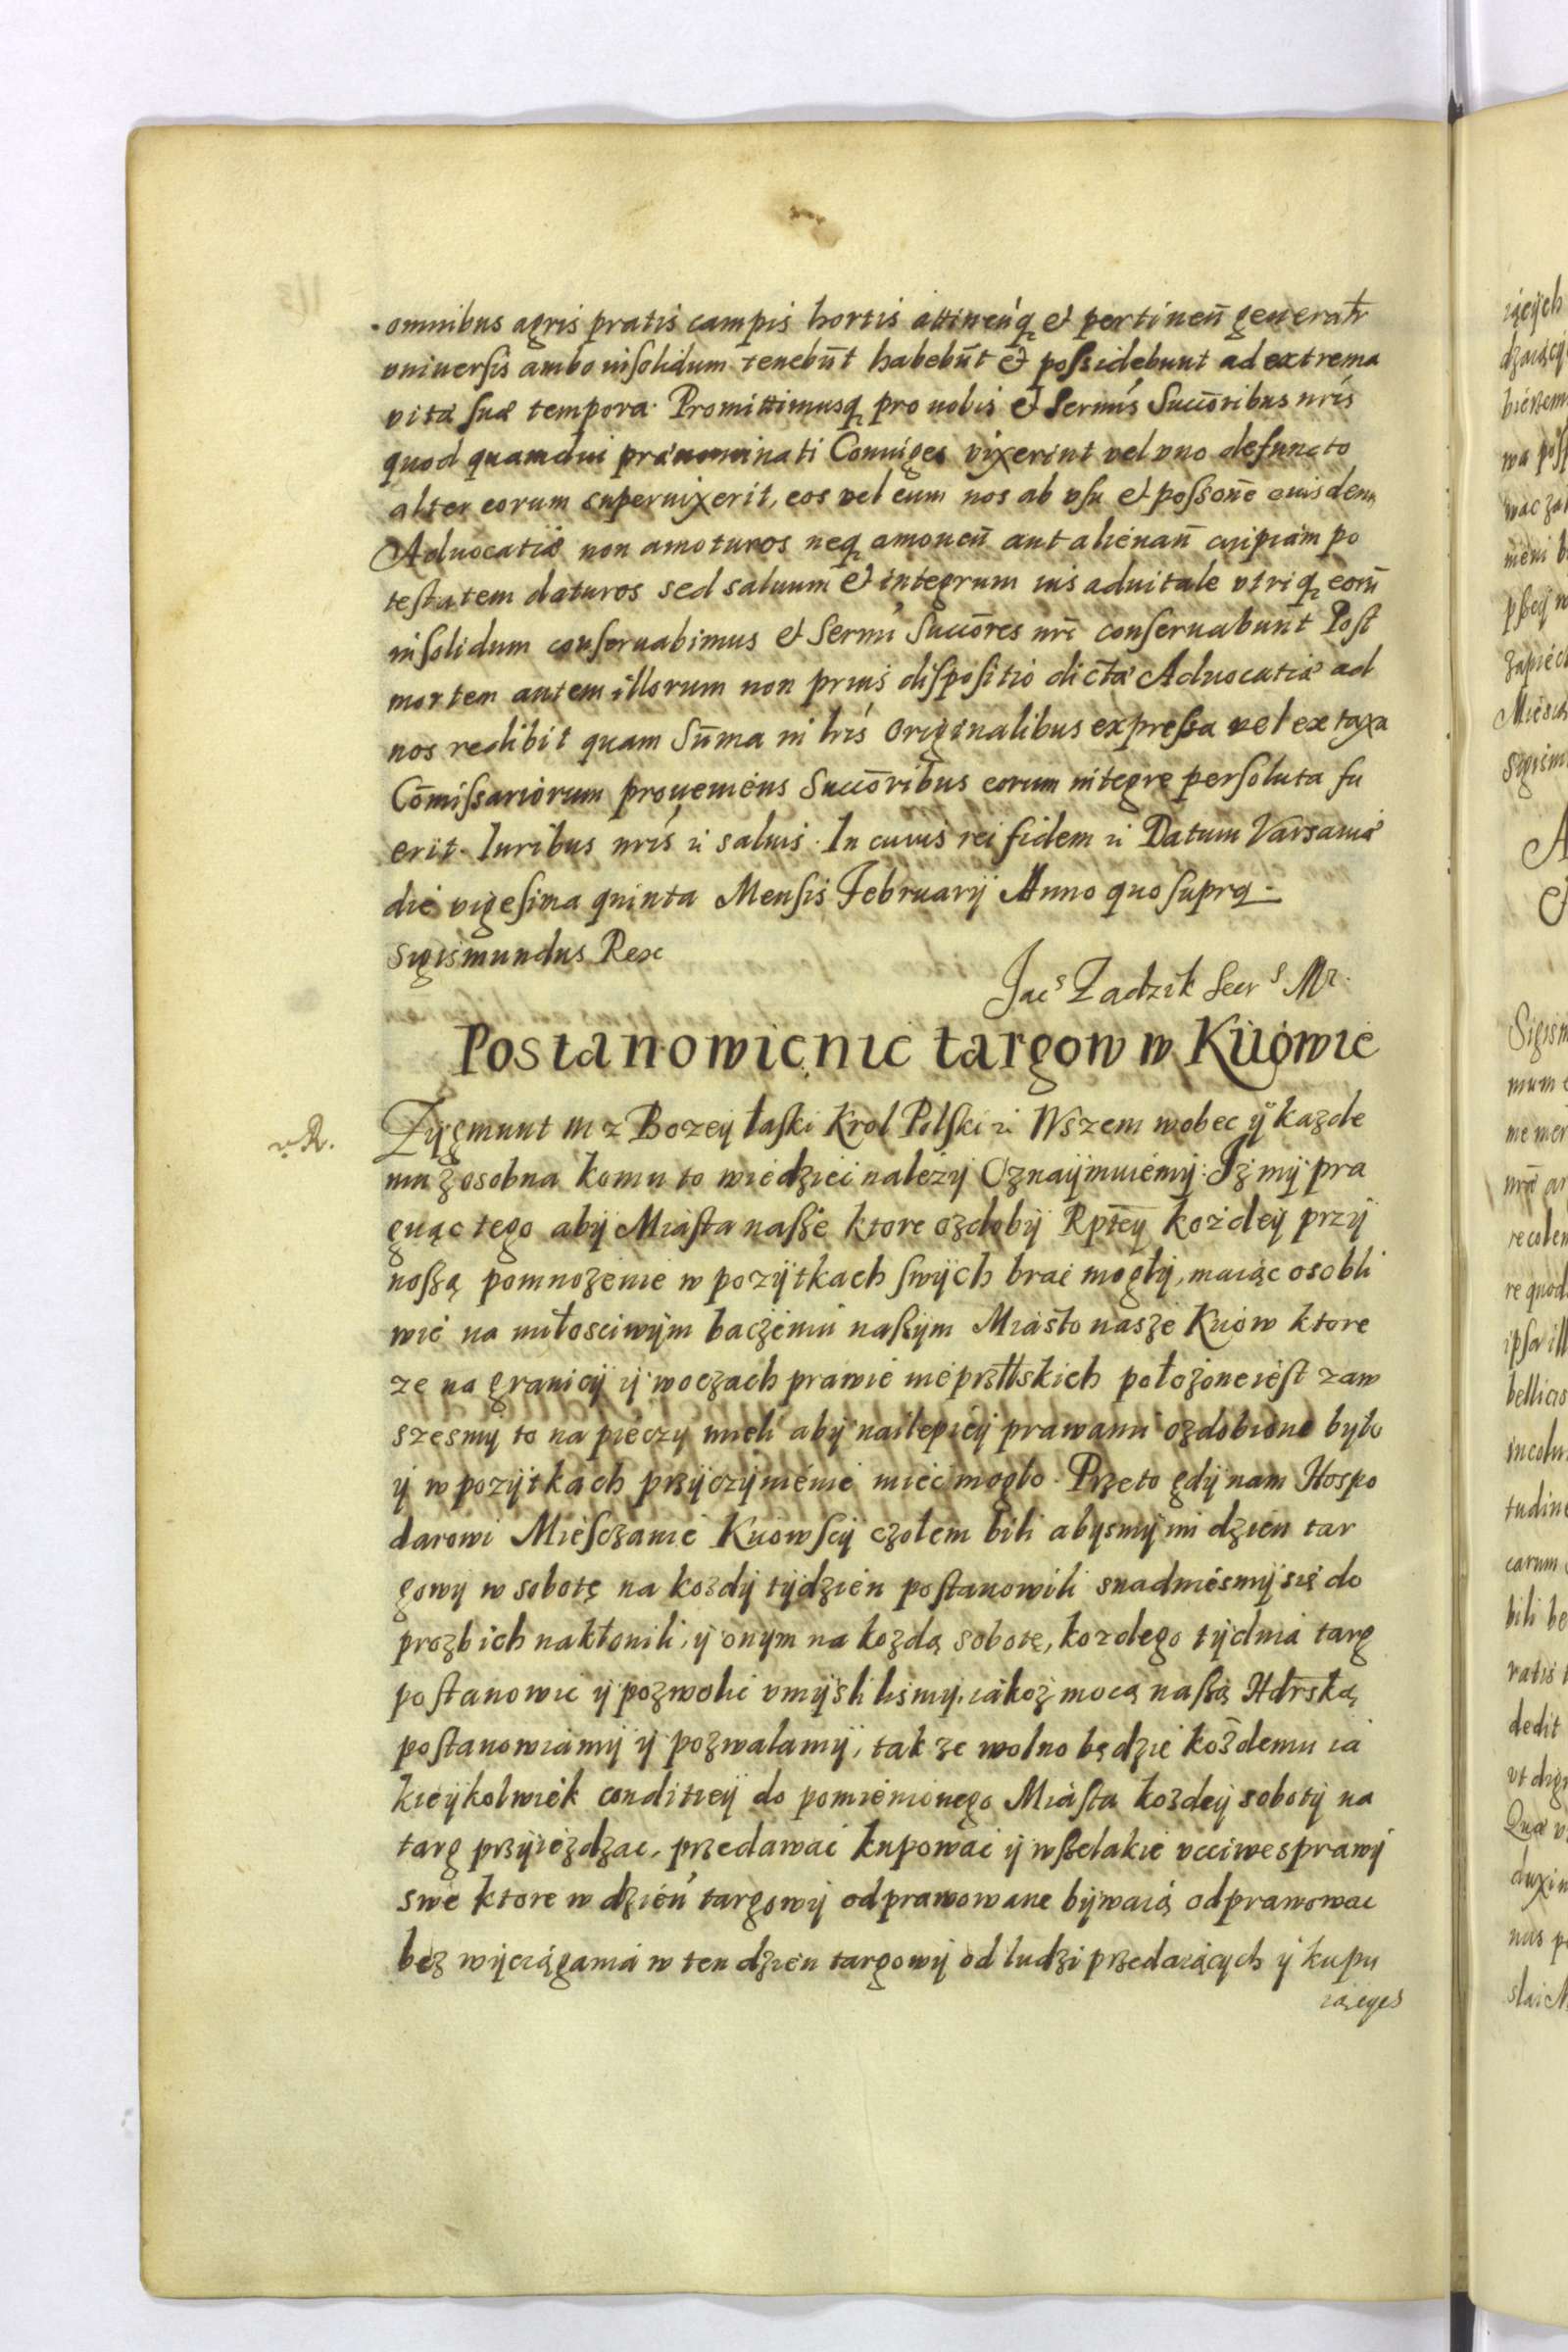 omnibus agris pratis campis hortis attineñq et pertineñ generalr
vniuersis ambo insolidum tenebūt habebūt et possidebunt ad extrema
vitæ suæ tempora. Promittimusq pro nobis et Sermis Succoribus nris
quod quamdiu prænominati Coniuges vixerint vel vno defuncto
alter eorum superuixerit, eos vel eum nos ab vsu et possone euisdem
Aduocatiæ non amoturos neq amoueñ aut alienañ cuipiam po
testatem daturos sed saluum et integrum ius aduitale vtriq eorū
insolidum conseruabimus et Sermi Succores nri conseruabunt Post
mortem autem illorum non prius dispositio dictæ Aduocatiæ ad
nos redibit quam Sūma in lris Originalibus expressa vel ex taxa
Cōmissariorum proueniens Succoribus eorum integre persoluta fu
erit. Iuribus nris ꝛ saluis. In cuius rei fidem ꝛ Datum Varsauiæ
die vigesima quinta Mensis February Anno quo supra.
Sigismundus Rex
Jacs Zadzik Secrs Mr.
Postanowienie targow w Kiiowie
Zygmunt III z Bozey łaski Krol Polski ꝛ Wszem wobec ÿ kazde
mu zosobna komu to wiedziec nalezy Oznaÿmuiemy: Iz mÿ pra
gnąc tego abÿ Miasta nasze ktore ozdobÿ Rptey kozdeÿ przÿ
noszą pomnozenie w pozÿtkach swÿch brac moglÿ, maiąc osobli
wie na miłosciwÿm baczeniu naszÿm Miasto nasze Kiiow ktore
ze na granicÿ ÿ w oczach prawie nieprzÿtłskich połozone iest zaw
szesmÿ to na pieczÿ mieli abÿ nailepieÿ prawami ozdobione było
ÿ w pozÿtkach przÿczÿnienie miec mogło. Przeto gdÿ nam Hospo
darowi Miesczanie Kiiowscÿ czołem bili abysmÿ im dzien tar
gowÿ w sobotę na kozdÿ tÿdzien postanowili snadniesmÿ się do
prozb ich nakłonili, ÿ onÿm na kozdą sobotę, kozdego tÿdnia targ
postanowic ÿ pozwolic vmÿslilismÿ. iakoz mocą naszą Hdrską
postanowiamÿ ÿ pozwalamÿ, tak ze wolno będzie kozdemu ia
kieÿkolwiek conditieÿ do pomienionego Miasta kozdeÿ sobotÿ na
targ przÿiezdzac, przedawac kupowac ÿ wszelakie vcciwe sprawÿ
swe ktore w dzien targowÿ odprawowane bÿwaią odprawowac
bez wÿciągania w ten dzien targowÿ od ludzi przedaiącÿch ÿ kupu
iącÿch